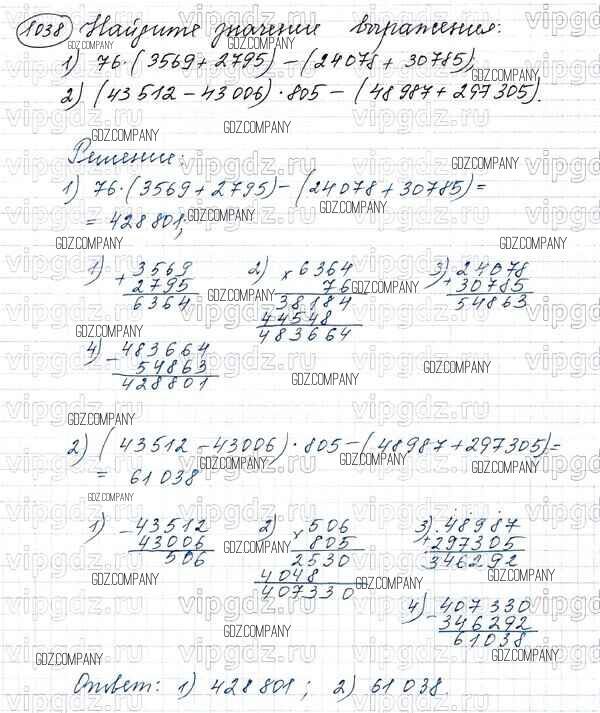 1038 Найдите значение выражения:
1) 76·(3569+2795)−(24078+30785);
2) (43512−43006)·805−(48987+297305).
Решение:
1) 76·(3569+2795)−(24078+30785)=
= 428801;
1) + 3569
2795
6364
2) × 6364
76
38184
44548
483664
3) + 24078
30785
54863
4) − 483664
54863
428801
2) (43512−43006)·805−(48987+297305)=
= 61038
1) − 43512
43006
506
2) × 506
805
2530
4048
407330
3) + 48987
297305
346292
4) − 407330
346292
61038
Ответ: 1) 428801; 2) 61038.
vipgdz.ru
GDZ.COMPANY